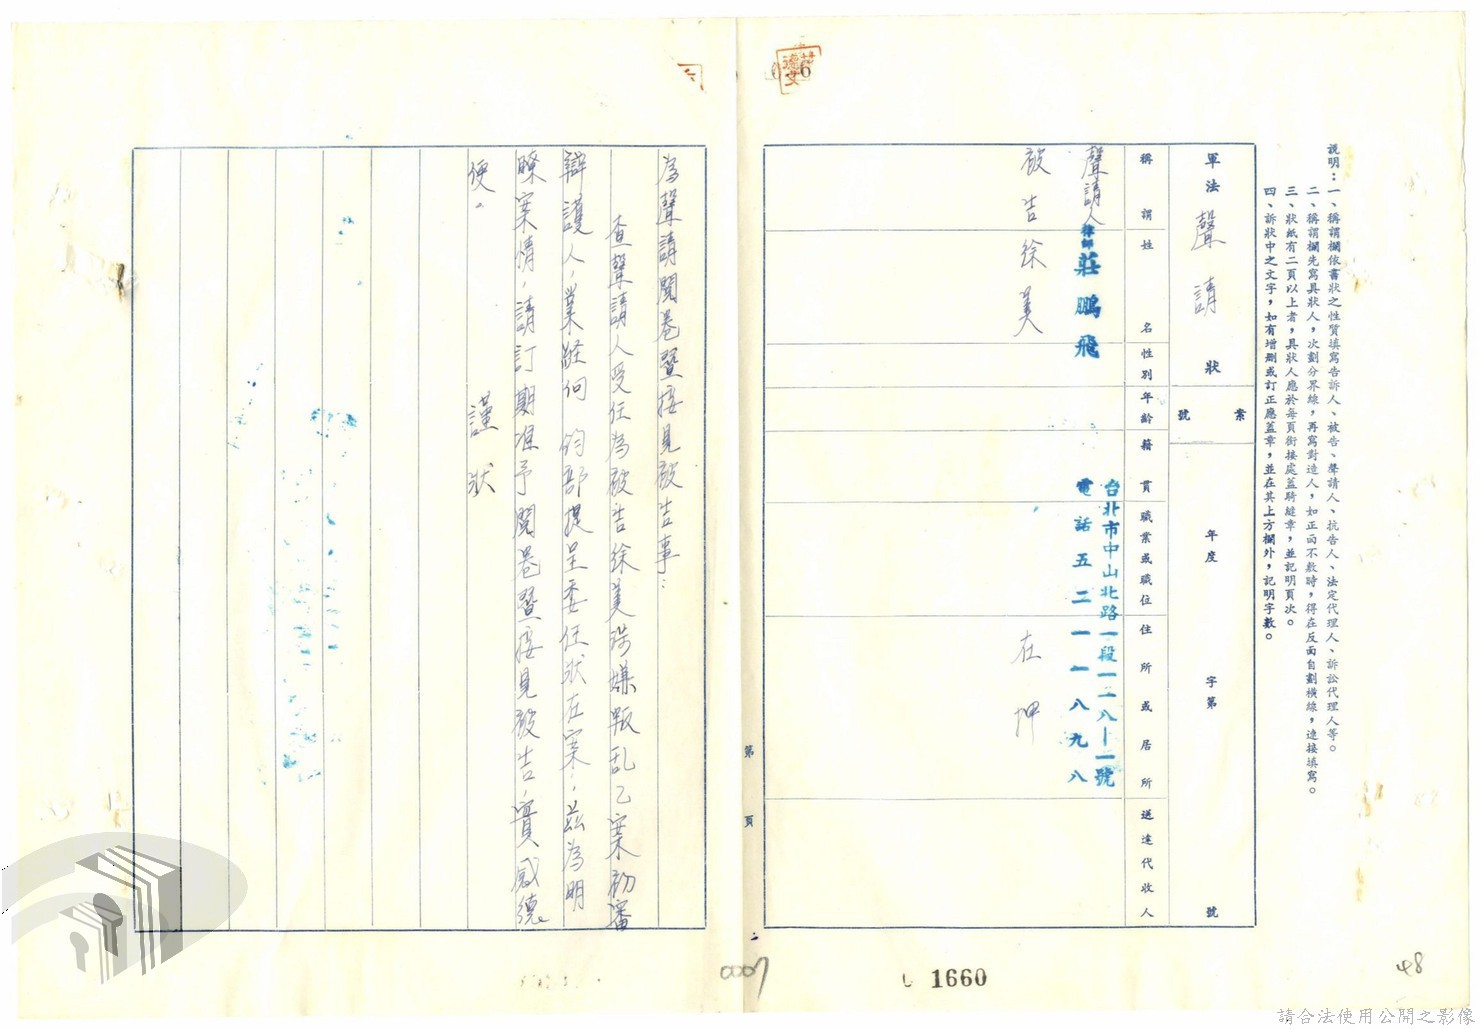 說明：一、稱謂欄依書狀之性質填寫告訴人、被告、聲請人、抗告人、法定代理人、訴訟代理人等。
二、稱謂欄先寫具狀人，次劃分界線，再寫對造人，如正面不敷時，得在反面自劃橫線，連接填寫。
三、狀紙有二頁以上者，具狀人應於每頁銜接處蓋騎縫章，並記明頁次。
四、訴狀中之文字，如有增刪或訂正應蓋章，並在其上方欄外，記明字數。
軍法聲請狀
案號
年度 字第 號
稱謂
姓名
性別
年齡
籍貫
職業或職位
住所或居所
送達代收人
聲請人 律師 莊鵬飛
台北市中山北路一段一二八—一號
電話五二一一八九八
被告 徐美 在押
第 頁
為聲請閱卷暨接見被告事：
查聲請人受任為被告徐美涉嫌叛乱乙案初審
辯護人，業経向 鈞部提呈委任狀在案，茲為明
瞭案情，請訂期准予閱卷暨接見被告，實感德
便。
謹狀
0007
1660
48
請合法使用公開之影像